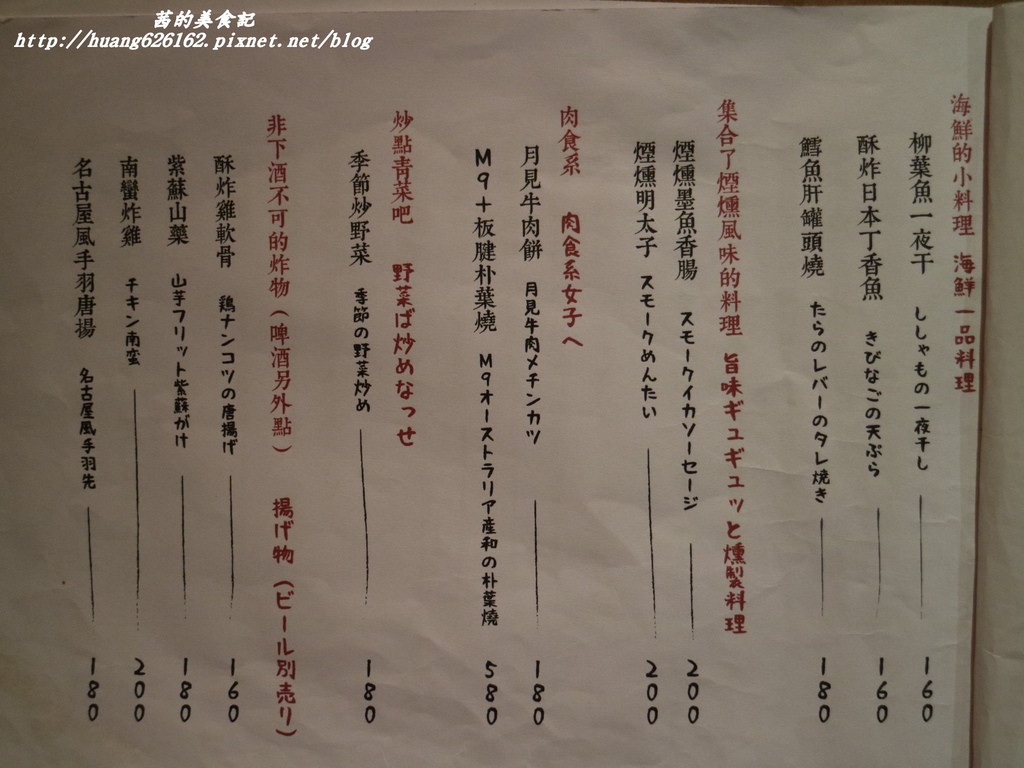 茜的美食記
http://huang626162.pixnet.net/blog
海鮮的小料理 海鮮一品料理
柳葉魚一夜干 ししゃもの一夜干し 160
酥炸日本丁香魚 きびなごの天ぷら 160
鱈魚肝罐頭燒 たらのレバーのタレ焼き 180
集合了煙燻風味的料理 旨味ギュギュッと燻製料理
煙燻墨魚香腸 スモークイカソーセージ 200
煙燻明太子 スモークめんたい 200
肉食系 肉食系女子へ
月見牛肉餅 月見牛肉メチンカツ 180
M9+板腱朴葉燒 M9オーストラリア産和の朴葉燒 580
炒點青菜吧 野菜ば炒めなっせ
季節炒野菜 季節の野菜炒め 180
非下酒不可的炸物(啤酒另外點) 揚げ物(ビール別売り)
酥炸雞軟骨 鶏ナンコツの唐揚げ 160
紫蘇山藥 山芋フリット紫蘇がけ 180
南蠻炸雞 チキン南蛮 200
名古屋風手羽唐揚 名古屋風手羽先 180